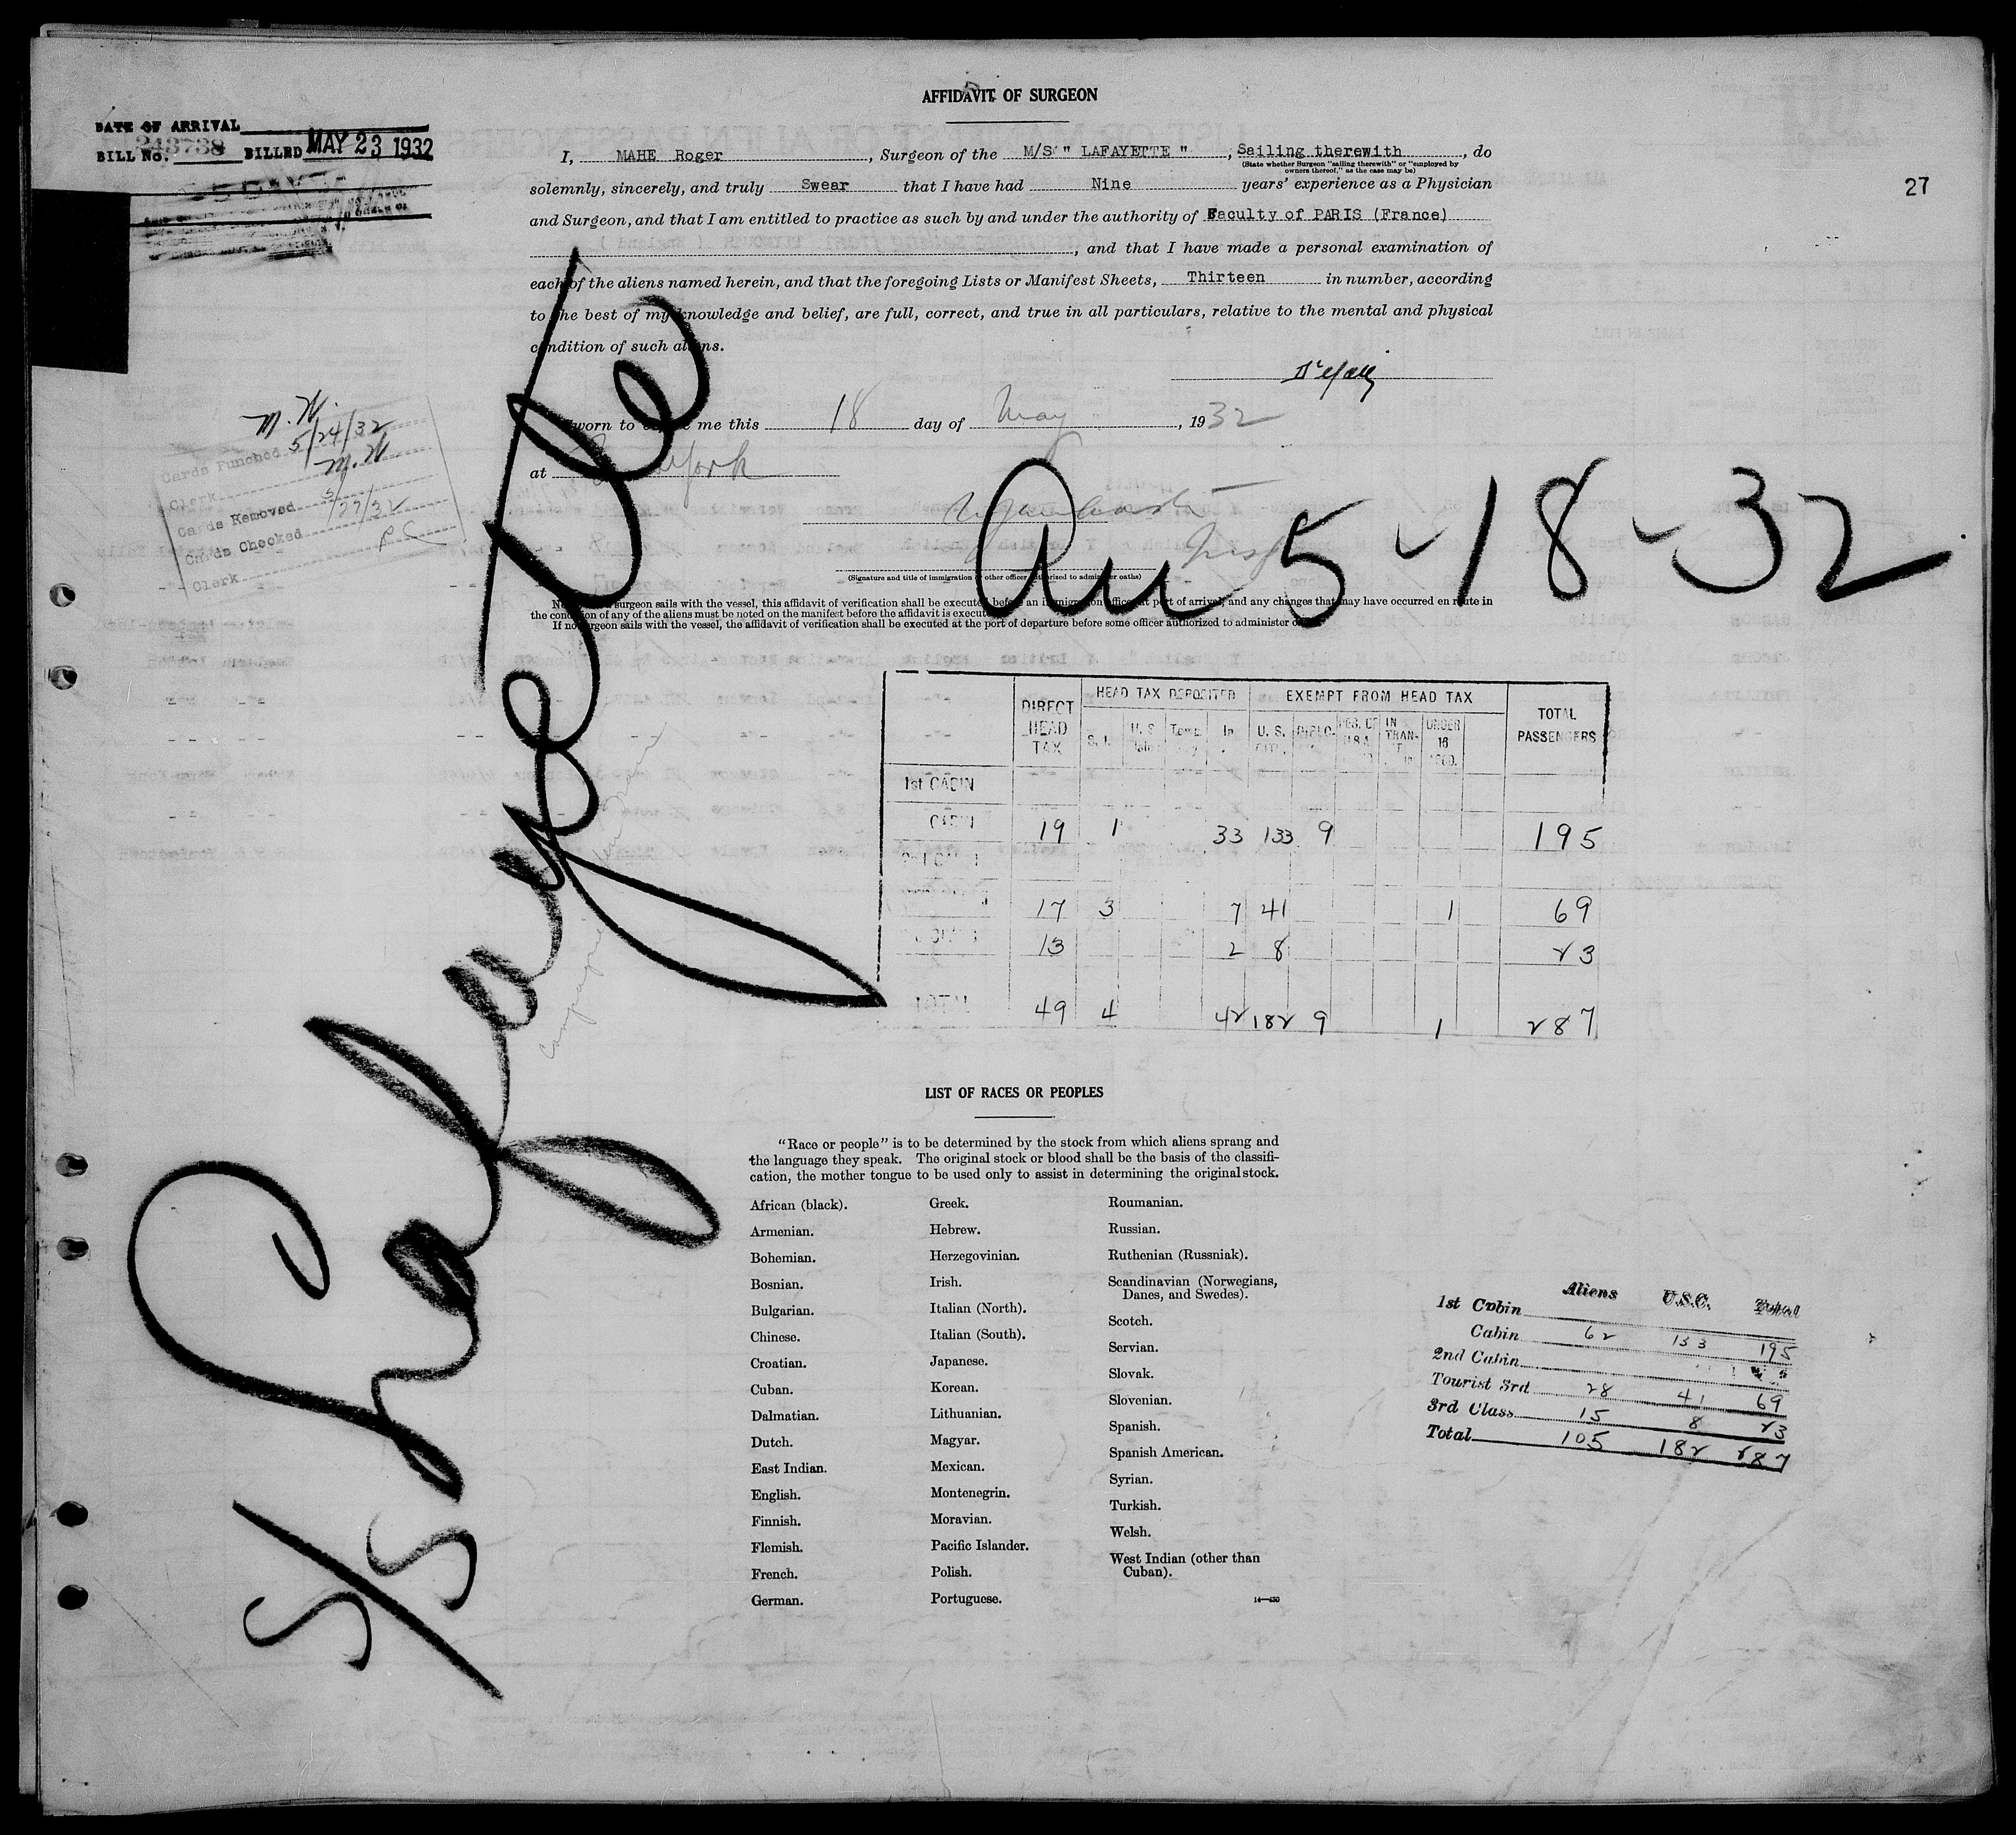 AFFIDAVIT OF SURGEON
DATE OF ARRIVAL
BILL No. 243738 BILLED MAY 23 1932
27
I, MAHE Roger, Surgeon of the M/S " LAFAYETTE ", Sailing therewith, do
(State whether Surgeon "sailing therewith" or "employed by
owners thereof," as the case may be)
solemnly, sincerely, and truly Swear that I have had Nine years' experience as a Physician
and Surgeon, and that I am entitled to practice as such by and under the authority of Faculty of PARIS (France)
, and that I have made a personal examination of
each of the aliens named herein, and that the foregoing Lists or Manifest Sheets, Thirteen in number, according
to the best of my knowledge and belief, are full, correct, and true in all particulars, relative to the mental and physical
condition of such aliens.
Sworn to before me this 18 day of May, 1932
at York
M.W.
Cards Punched 5/24/32
Clerk M.W
Cards Removed
Cards Checked 5/27/32
Clerk RC
S/S Lafayette
Arr 5-18-32
(Signature and title of immigration or other officer authorized to administer oaths)
surgeon sails with the vessel, this affidavit of verification shall be executed before an immigration officer at port of arrival, and any changes that may have occurred en route in
the condition of any of the aliens must be noted on the manifest before the affidavit is executed
If no surgeon sails with the vessel, the affidavit of verification shall be executed at the port of departure before some officer authorized to administer
DIRECT HEAD TAX HEAD TAX DEPOSITED EXEMPT FROM HEAD TAX TOTAL PASSENGERS
S. I. U. S. Temp. In U. S. DIPLO. IN TRAN- UNDER 16
1st CABIN
CABIN 19 1 33 133 9 195
17 3 7 41 1 69
13 2 8 23
TOTAL 49 4 42 182 9 1 287
LIST OF RACES OR PEOPLES
"Race or people" is to be determined by the stock from which aliens sprang and
the language they speak. The original stock or blood shall be the basis of the classifi-
cation, the mother tongue to be used only to assist in determining the original stock.
African (black).
Armenian.
Bohemian.
Bosnian.
Bulgarian.
Chinese.
Croatian.
Cuban.
Dalmatian.
Dutch.
East Indian.
English.
Finnish.
Flemish.
French.
German.
Greek.
Hebrew.
Herzegovinian.
Irish.
Italian (North).
Italian (South).
Japanese.
Korean.
Lithuanian.
Magyar.
Mexican.
Montenegrin.
Moravian.
Pacific Islander.
Polish.
Portuguese.
Roumanian.
Russian.
Ruthenian (Russniak).
Scandinavian (Norwegians,
Danes, and Swedes).
Scotch.
Servian.
Slovak.
Slovenian.
Spanish.
Spanish American.
Syrian.
Turkish.
Welsh.
West Indian (other than
Cuban).
14—430
Aliens U.S.C. Total
1st Cabin
Cabin 62 133 195
2nd Cabin
Tourist 3rd 28 41 69
3rd Class 15 8 23
Total 105 182 287